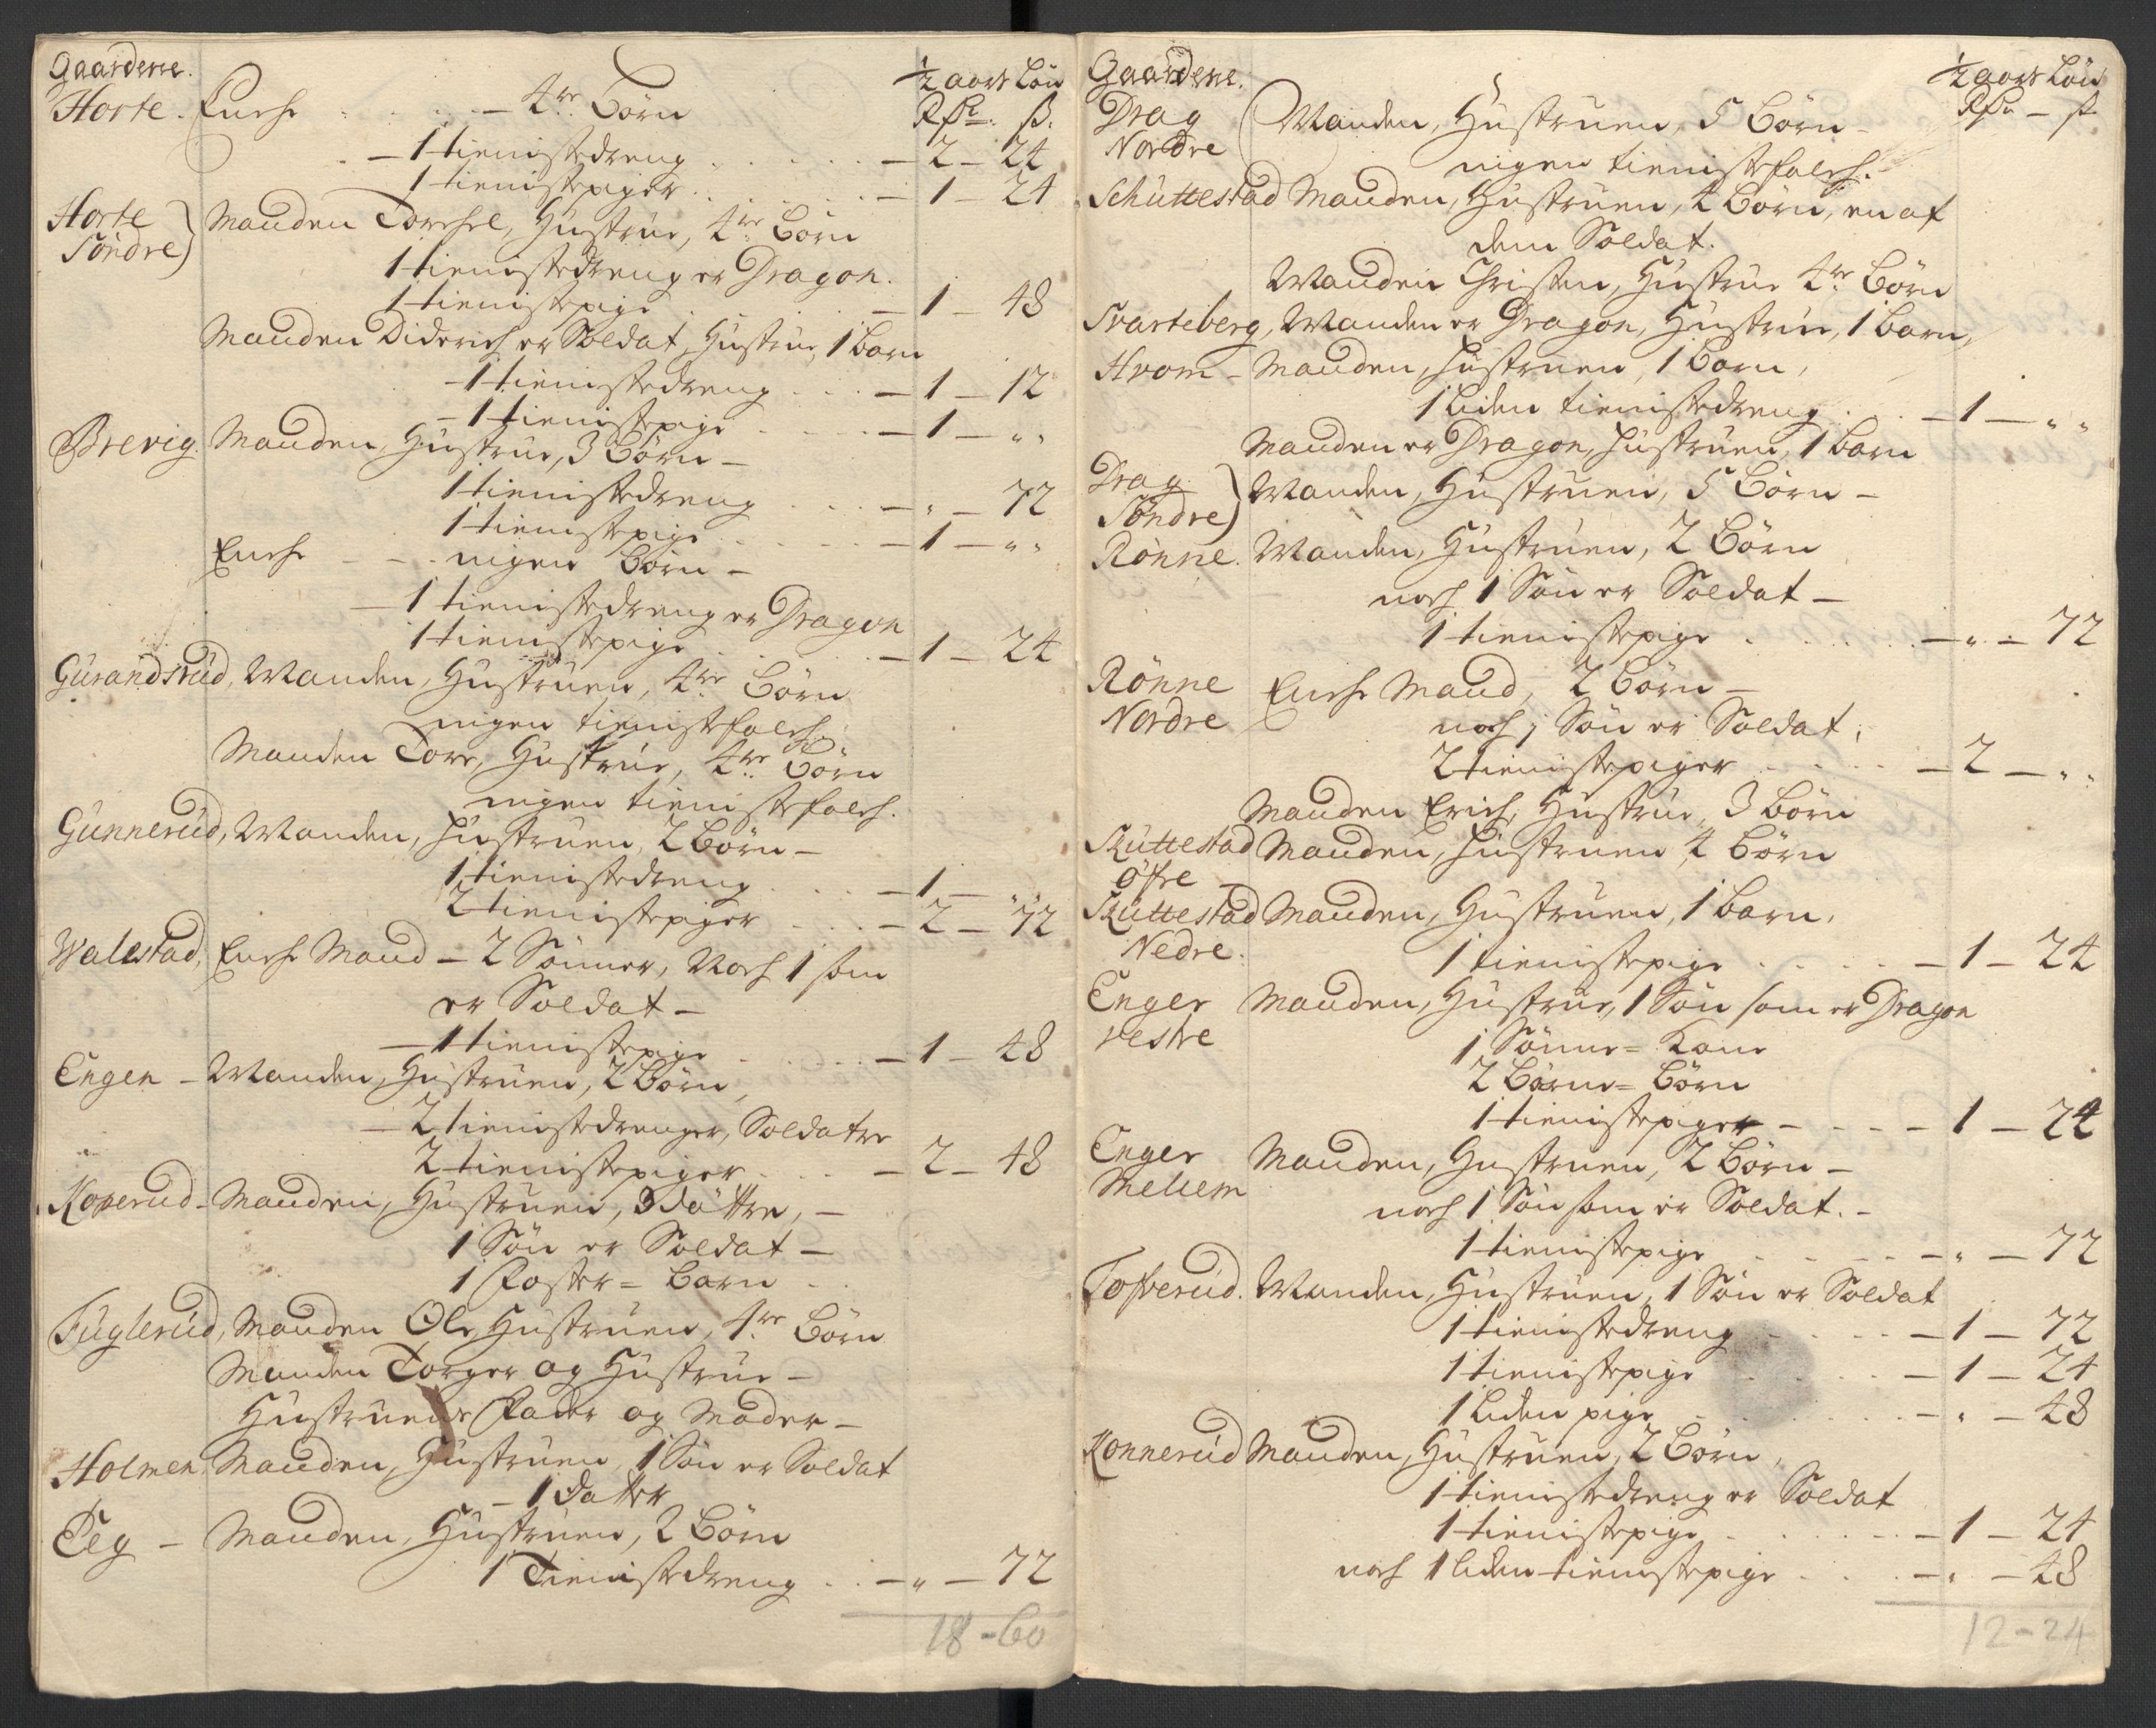 Gaardene. ½ aars Løn
Rdr. ß.
Horte. Enche - 4re Børn
1 tienistedreng - 2 - 24
1 tienistepiger - 1 - 24
Horte Søndre) Manden Torchel, Hustrue, 4re Børn
1 tienistedreng er Dragon.
1 tienistepige - 1 - 48
Manden Diderich er Soldat, Hustrue, 1 barn
1 tienistedreng - 1 - 12
1 tienistepige - 1 - „
Brevig. Manden, Hustrue, 3 Børn -
1 tienistedreng - „ - 72
1 tienistepige - 1 - „
Enche - ingen Børn -
1 tienistedreng er Dragon
1 tienistepige - 1 - 24
Gurandsrud, Manden, Hustruen, 4re Børn
ingen tienistefolch.
Manden Tore, Hustrue, 4re Børn
ingen tienistefolch.
Gunnerud, Manden, Hustruen, 2 Børn -
1 tienistedreng - 1 - „
2 tienistepiger - 2 - 72
Walestad, Enche Mand - 2 Sønner, Noch 1 som
er Soldat -
1 tienistepige - 1 - 48
Engen - Manden, Hustruen, 2 Børn,
2 tienistedrenger, Soldatre
2 tienistepiger - 2 - 48
Koperud - Manden, Hustruen, 3 døttre, -
1 Søn er Soldat -
1 Foster = Barn
Fuglerud, Manden Ole, Hustruen, 4re Børn
Manden Torger og Hustrue -
Hustruens Fader og Moder -
Holmen, Manden, Hustruen, 1 Søn er Soldat
- 1 datter
Teg - Manden, Hustruen, 2 Børn
1 Tienistedreng - „ - 72
18 - 60
Gaardene. ½ aars Løn
Rdr - ß
Drag Nordre (Manden, Hustruen, 5 Børn -
ingen tienistefolch.
Schuttestad Manden, Hustruen, 4 Børn, en af
dem Soldat.
Manden Christen, Hustrue 4re Børn
Svarteberg, Manden er Dragon, Hustrue, 1 barn,
Hvom - Manden, Hustruen, 1 barn,
1 liden tienistedreng - 1 - „
Manden er Dragon, Hustruen, 1 barn
Drag Søndre) Manden, Hustruen, 5 Børn -
Rønne. Manden, Hustruen, 2 Børn
noch 1 Søn er Soldat -
1 tienistepige - „ - 72
Rønne Nordre Enche Mand, 2 Børn -
noch 1 Søn er Soldat,
2 tienistepiger - 2 - „
Manden Erich, Hustrue, 3 børn
Skuttestad Øfre - Manden, Hustruen 4 børn
Skuttestad Nedre. Manden, Hustruen, 1 barn,
1 tienistepige - 1 - 24
Enger vestre Manden, Hustrue, 1 Søn som er Dragon
1 Sønne = Kone
2 Børne = Børn
1 tienistepiger - 1 - 24
Enger Melem Manden, Hustruen, 2 Børn -
noch 1 Søn som er Soldat. -
1 tienistepige - „ - 72
Tofterud. Manden, Hustruen, 1 Søn er Soldat
1 tienistedreng - 1 - 72
1 tienistepige - 1 - 24
1 liden pige - „ - 48
Konnerud Manden, Hustruen, 2 Børn,
1 tienistedreng er Soldat
1 tienistepige - 1 - 24
noch 1 liden tienistepige - „ - 48
12 - 24